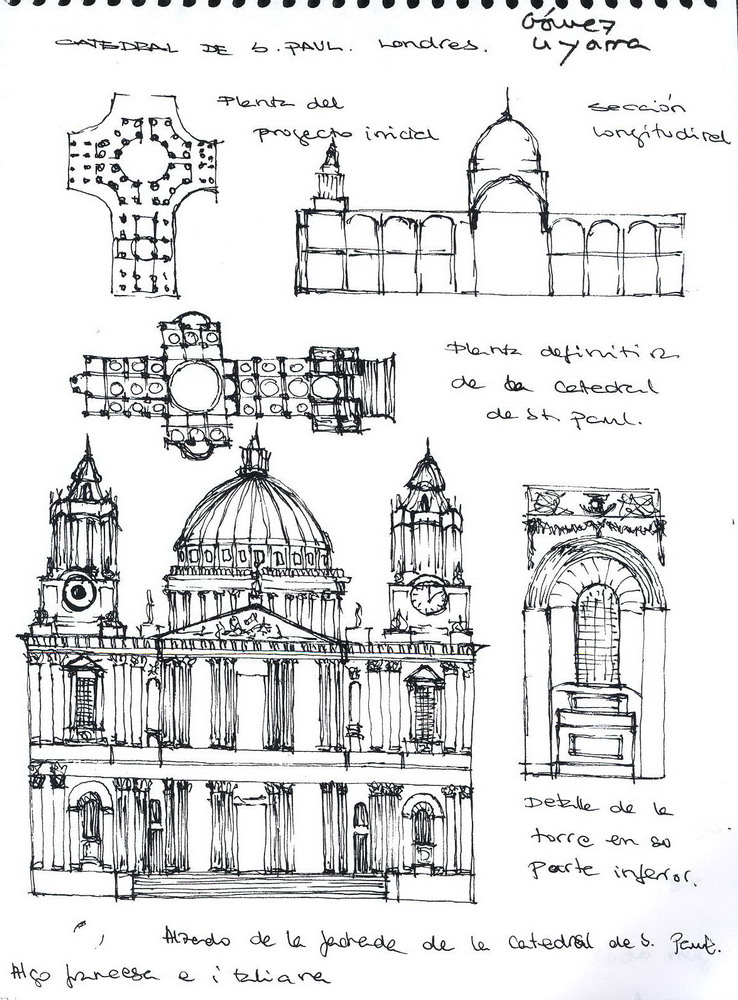 Gómez
Uyarra
CATEDRAL DE S. PAUL. Londres.
Planta del
proyecto inicial
sección
longitudinal
Planta definitiva
de la Catedral
de St. Paul.
Detalle de la
torre en so
parte inferior.
Alzado de la fachada de la Catedral de S. Paul.
Algo francesa e italiana